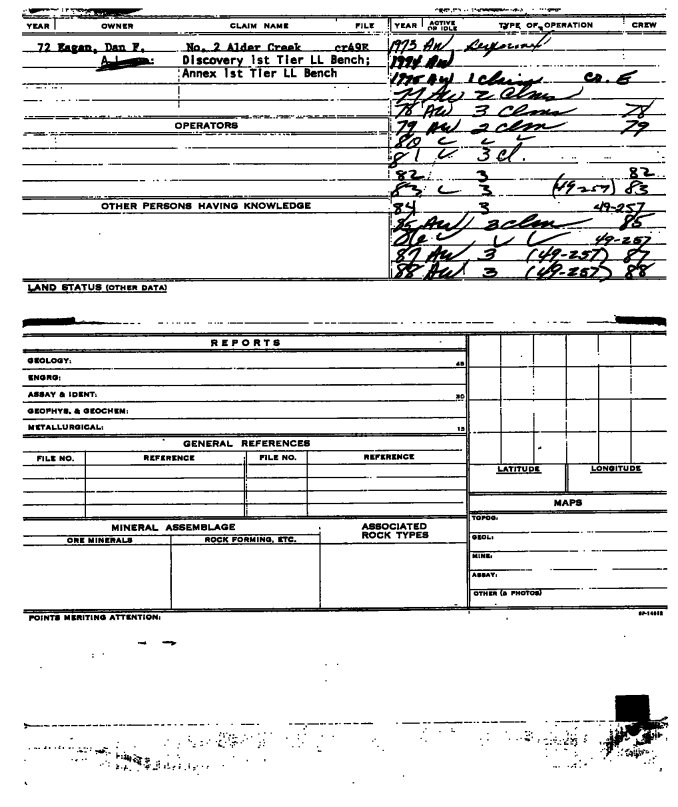 YEAR OWNER CLAIM NAME FILE YEAR ACTIVE OR IDLE TYPE OF OPERATION CREW
72 Eagan, Dan F. No. 2 Alder Creek cr49E 1973 AW
Discovery 1st Tier LL Bench; 1974 AW
Annex 1st Tier LL Bench 1975 AW 1 claim
77 AW 2 Clms
78 AW 3 Clms 78
OPERATORS 79 AW 2 clm 79
80
81 3 cl.
82 3 82
83 3 (49-257) 83
OTHER PERSONS HAVING KNOWLEDGE 84 3 49-257
85 AW 3 clm 85
86 49-257
87 AW 3 (49-257) 87
88 AW 3 (49-257) 88
LAND STATUS (OTHER DATA)
REPORTS
GEOLOGY: 45
ENGRG:
ASSAY & IDENT: 30
GEOPHYS. & GEOCHEM:
METALLURGICAL: 15
GENERAL REFERENCES
FILE NO. REFERENCE FILE NO. REFERENCE
LATITUDE LONGITUDE
MAPS
TOPOG:
MINERAL ASSEMBLAGE ASSOCIATED ROCK TYPES
ORE MINERALS ROCK FORMING, ETC.
GEOL:
MINE:
ASSAY:
OTHER (& PHOTOS)
POINTS MERITING ATTENTION: